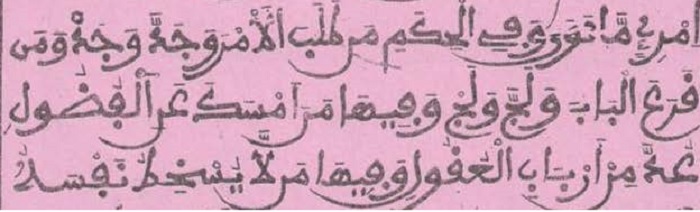 امرئ مّا نوى وفي الحكم من طلب الأمر وجدّ وجده ومن
فرع الباب ولجّ ولج وفيها من امسك عن الفضول
عدّ من أرباب العقول وفيها من لّا يسخط نفسه